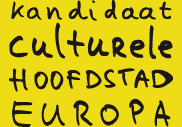 kandidaat
culturele
HOOFDSTAD
EUROPA